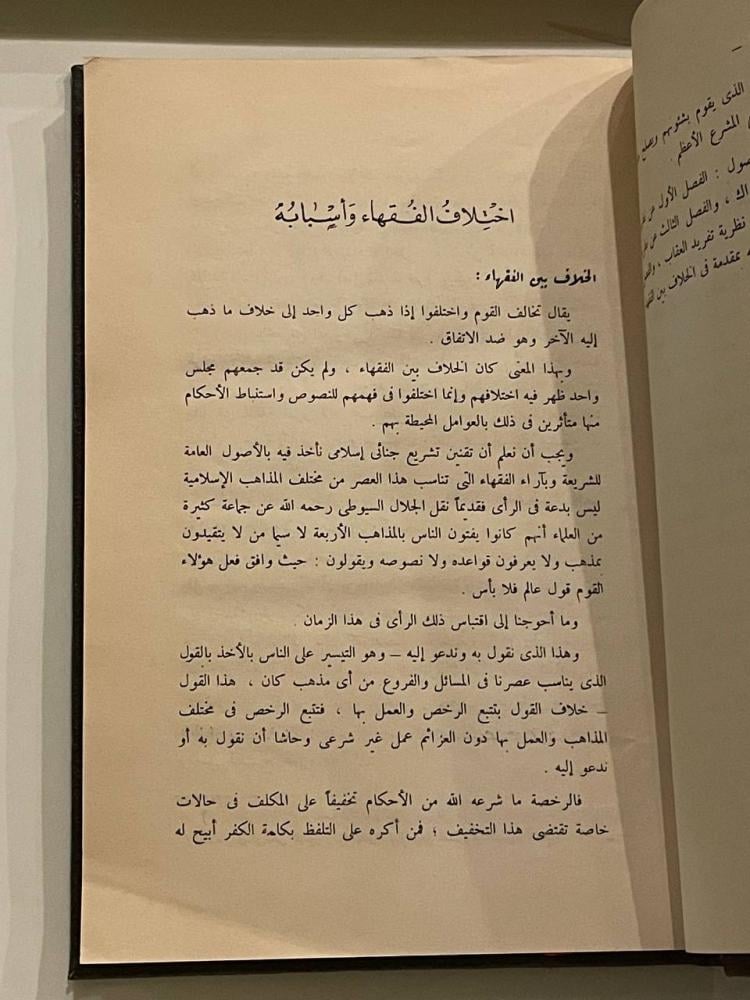 اختلاف الفقهاء وأسبابه
الخلاف بين الفقهاء :
يقال تخالف القوم واختلفوا إذا ذهب كل واحد إلى خلاف ما ذهب
إليه الآخر وهو ضد الاتفاق .
وبهذا المعنى كان الخلاف بين الفقهاء ، ولم يكن قد جمعهم مجلس
واحد ظهر فيه اختلافهم وإنما اختلفوا فى فهمهم للنصوص واستنباط الأحكام
منها متأثرين فى ذلك بالعوامل المحيطة بهم .
ويجب أن نعلم أن تقنين تشريع جنائى إسلامى نأخذ فيه بالأصول العامة
للشريعة وبآراء الفقهاء التى تناسب هذا العصر من مختلف المذاهب الإسلامية
ليس بدعة فى الرأى فقديماً نقل الجلال السيوطى رحمه الله عن جماعة كثيرة
من العلماء أنهم كانوا يفتون الناس بالمذاهب الأربعة لا سيما من لا يتقيدون
بمذهب ولا يعرفون قواعده ولا نصوصه ويقولون : حيث وافق فعل هؤلاء
القوم قول عالم فلا بأس .
وما أحوجنا إلى اقتباس ذلك الرأى فى هذا الزمان .
وهذا الذى نقول به وندعو إليه – وهو التيسير على الناس بالأخذ بالقول
الذى يناسب عصرنا فى المسائل والفروع من أى مذهب كان ، هذا القول
– خلاف القول بتتبع الرخص والعمل بها ، فتتبع الرخص فى مختلف
المذاهب والعمل بها دون العزائم عمل غير شرعى وحاشا أن نقول به أو
ندعو إليه .
فالرخصة ما شرعه الله من الأحكام تخفيفاً على المكلف فى حالات
خاصة تقتضى هذا التخفيف ؛ فمن أكره على التلفظ بكلمة الكفر أبيح له
الذى يقوم بشئونهم ويصلح
المشرع الأعظم .
الفصل الأول عن
، والفصل الثالث عن
نظرية تفريد العقاب ،
بمقدمة فى الخلاف بين